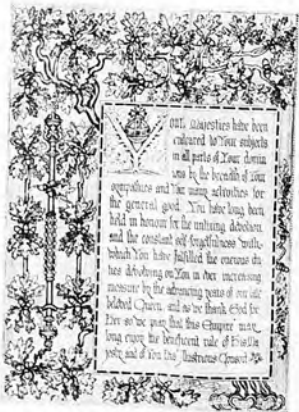 Your Majesties have been
endeared to Your subjects
in all parts of Your domin
ions by the breadth of Your
sympathies and Your many activities for
the general good. You have long been
held in honour for the untiring devotion
and the constant self-forgetfulness with
which You have fulfilled the onerous du
ties devolving on You in ever increasing
measure by the advancing years of our late
beloved Queen, and as we thank God for
Her so we pray that this Empire may
long enjoy the beneficent rule of His Ma
jesty and of You His Illustrious Consort